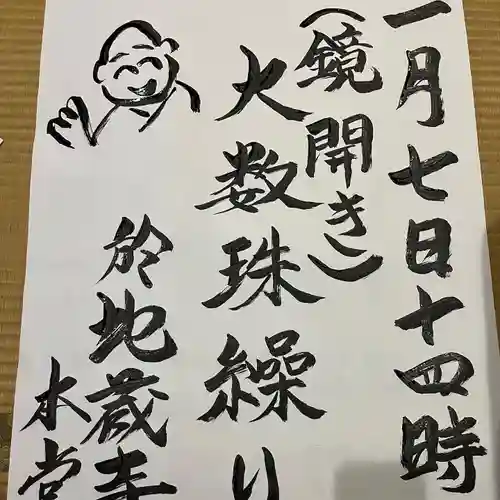 一月七日十四時
(鏡開き)
火数珠繰り
於地蔵寺
本堂